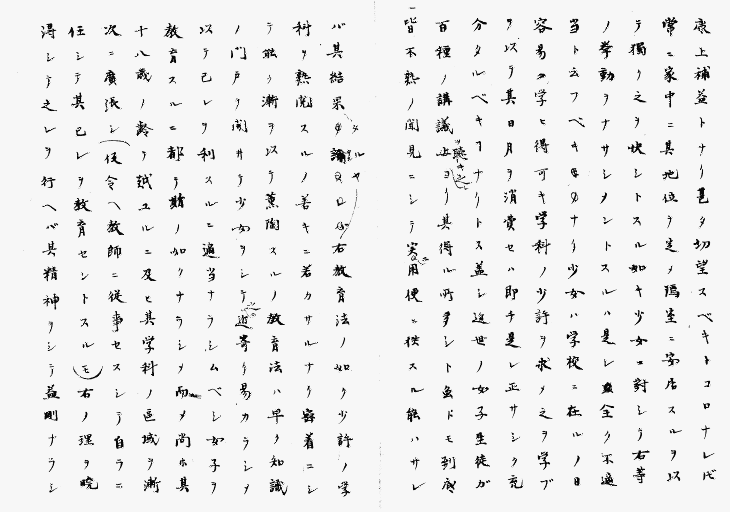 康上補益トナリ甚タ切望スベキトコロナレ𪜈
常ニ家中ニ其地位ヲ定メ隅室ニ安居スルヲ以
テ獨リ之ヲ快シトスル如キ少女ニ對シテ右等
ノ挙動ヲナサシメントスルハ是レ全ク不適
当ト云フベキナリ少女ハ学校ニ在ルノ日
容易ク学ヒ得可キ学科ノ少許ヲ求メ之ヲ学ブ
ヲ以テ其日月ヲ消費セハ即チ是レ正サシク充
分タルベキナリトス蓋シ近世ノ女子生徒ガ
百種ノ講議ヲ聴キ之ヨリ其得ル所多シト虽ドモ到底
皆不熟ノ聞見ニシテ実用便ニ供スル能ハサレ
バ其結果タルヤ右教育法ノ如ク少許ノ学
科ヲ熟閲スルノ善キニ若カサルナリ容着ニシ
テ能ク漸ヲ以テ薫陶スルノ教育法ハ早ク知識
ノ門戸ヲ開カサテ少女ヲシテ近寄リ易カラシメ
以テ己レヲ利スルニ適当ナラシムベシ如子ヲ
教育スルニ都テ期ノ如クナラシメ而メ尚ホ其
十八歳ノ齢ヲ越ユルニ及ヒ其学科ノ區域ヲ漸
次ニ廣張シ（仮令ヘ教師ニ従事セスシテ自ラニ
任シテ其己レヲ教育セントスルモ）右ノ理ヲ暁
得シテ之レヲ行ヘバ其精神ヲシテ益剛ナラシ